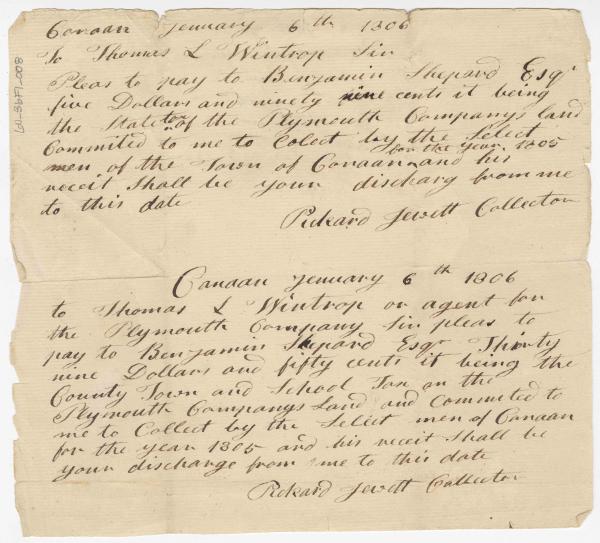 Canaan jenuary 6th 1806
To Thomas L Wintrop Sir
Pleas to pay to Benjamin Shepard Esqr
five Dollars and ninety nine cents it being
the State tax of the Plymouth Companys land
Committed to me to Colect by the Select
men of the Town of Canaan for the year 1805 and his
receit shall be your discharg from me
to this date
Pickard Jewett Collector
Canaan jenuary 6th 1806
to Thomas L Wintrop or agent for
the Plymouth Company Sir pleas to
pay to Benjamin Shepard Esqr Thirty
nine Dollars and fifty cents it being the
County Town and School Tax on the
Plymouth Companys Land and Commited to
me to Collect by the Select men of Canaan
for the year 1805 and his receit shall be
your discharge from me to this date
Pickard Jewett Collector